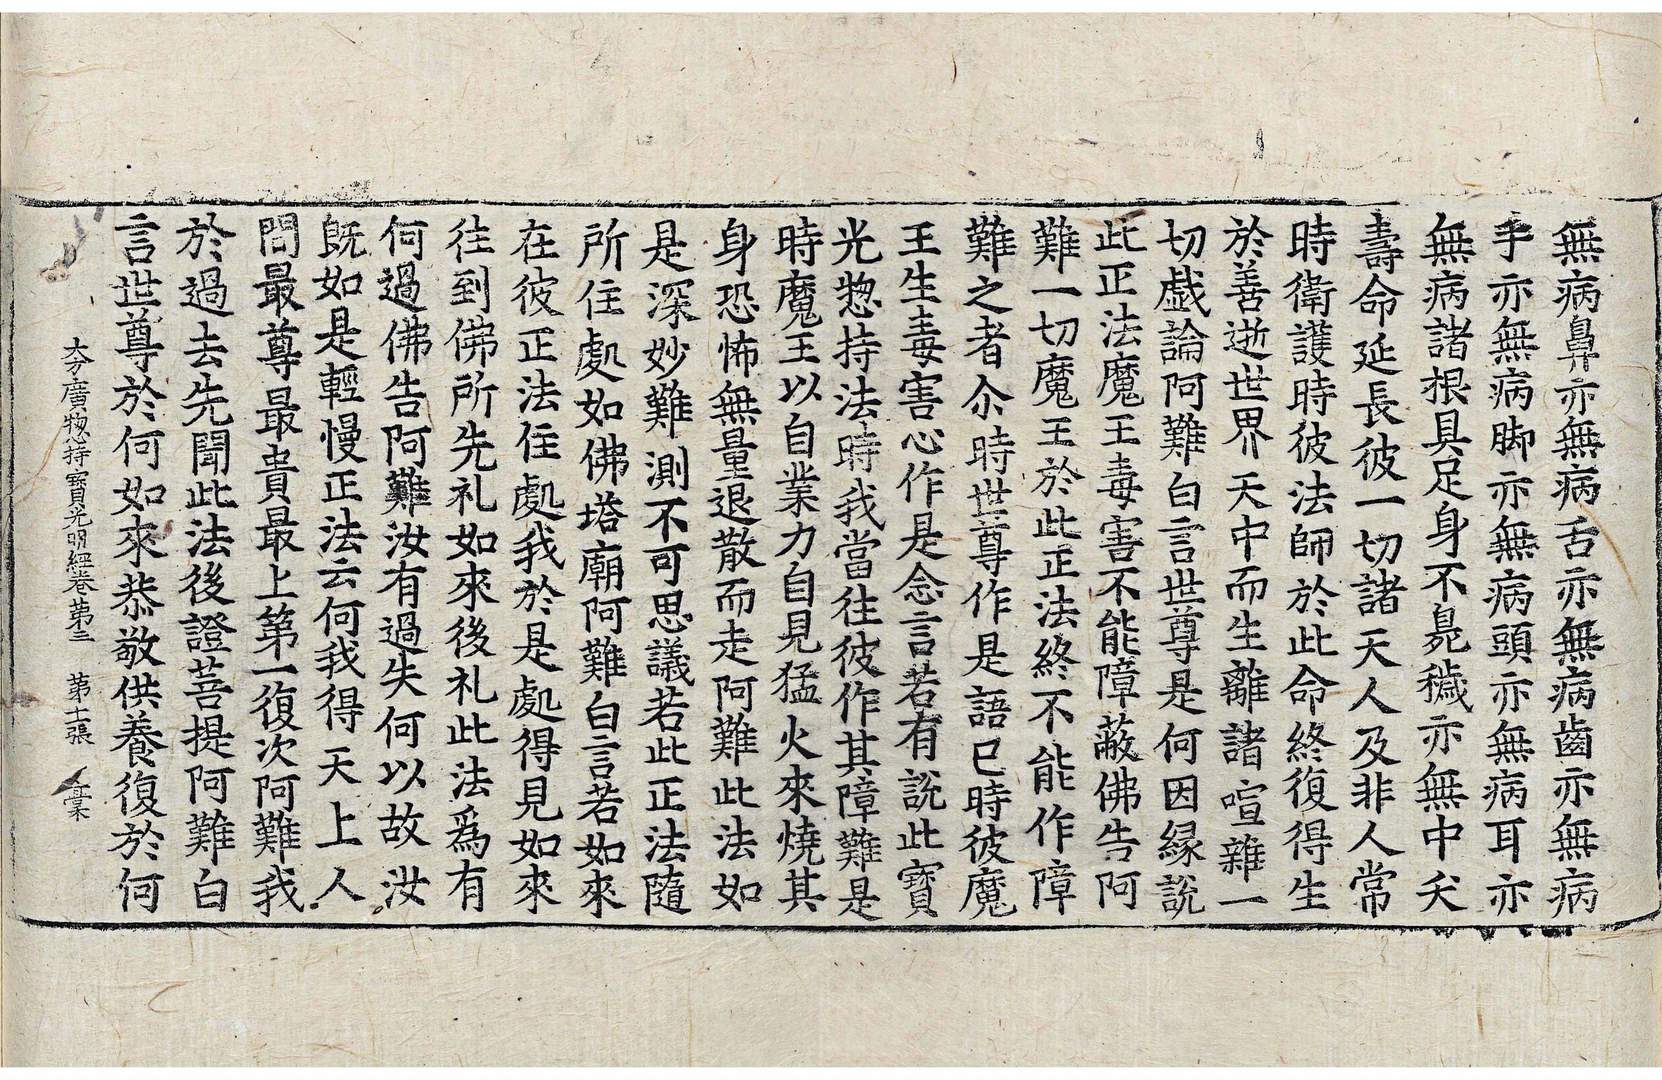 無病鼻亦無病舌亦無病齒亦無病
手亦無病脚亦無病頭亦無病耳亦
無病諸根具足身不臰穢亦無中夭
壽命延長彼一切諸天人及非人常
時衛護時彼法師於此命終復得生
於善逝世界天中而生離諸喧雜一
切戱論阿難白言世尊是何因縁說
此正法魔王毒害不能障蔽佛告阿
難一切魔王於此正法終不能作障
難之者尒時世尊作是語已時彼魔
王生毒害心作是念言若有說此寳
光惣持法時我當往彼作其障難是
時魔王以自業力自見猛火來燒其
身恐怖無量退散而走阿難此法如
是深妙難測不可思議若此正法隨
所住處如佛塔廟阿難白言若如來
在彼正法住處我於是處得見如來
往到佛所先礼如來後礼此法爲有
何過佛告阿難汝有過失何以故汝
旣如是輕慢正法云何我得天上人
間最尊最貴最上第一復次阿難我
於過去先聞此法後證菩提阿難白
言世尊於何如來恭敬供養復於何
大方廣惣持寳光明經卷第三 第十張